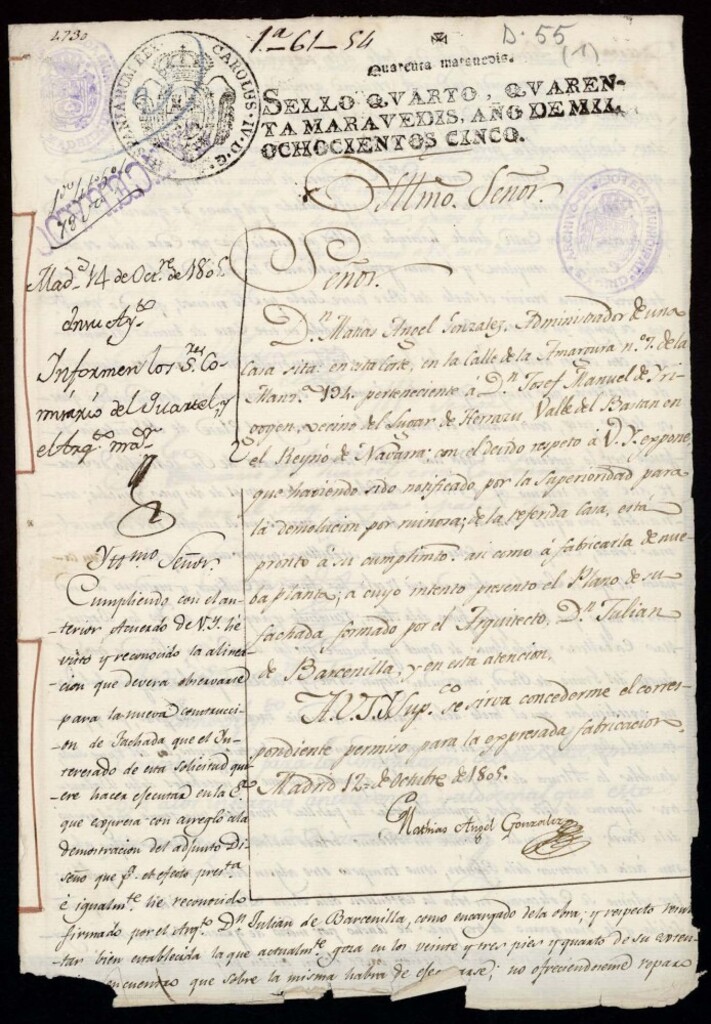 1730
1ª-61-54
D. 55
(1)
Quarenta maravedis.
SELLO QVARTO, QVAREN-
TA MARAVEDIS, AÑO DE MIL
OCHOCIENTOS CINCO.
CAROLUS IV D. G. HISPANIARUM REX
ARCHIVO BIBLIOTECA MUNICIPAL
Yllmo. Señor.
Señor.
Dn. Matias Angel Gonzalez, Administrador de una
Casa sita en esta Corte, en la Calle de la Amargura nº. 7. de la
Manz.ª 194. perteneciente á Dn. Josef Manuel de Yri-
goyen, vecino del Lugar de Herrazu, Valle del Bastan en
el Reyno de Navarra: con el devido respeto á V.Y. expone,
que haviendo sido notificado por la Superioridad para
la demolicion por ruinosa, de la referida Casa, está
pronto á su cumplimto. asi como á fabricarla de nue-
ba planta, a cuyo intento presento el Plano de su
fachada, formado por el Arquitecto, Dn. Julian
de Barcenilla, y en esta atencion,
A.V.Y. Supco. se sirva concederme el corres-
pondiente permiso para la expresada fabricacion.
Madrid 12 de Octubre de 1805.
Mathias Angel Gonzalez
Madd. 14 de Octre. de 1805.
En su Ayto.
Informen los Sres. Co-
misario del Quartel, y
el Arqto. mor.
Yllmo Señor.
Cumpliendo con el an-
terior Acuerdo de V.Y. he
visto y reconocido la aline-
cion que devera observarse
para la nueva construcci-
on de Fachada que el In-
teresado de esta solicitud qui-
ere hacer executar en la Cª.
que expresa con arreglo a la
demostracion del adjunto Di-
seño que pª. el efecto presta.
é igualmte. he reconocido
firmado por el Arqto. Dn. Julian de Barcenilla, como encargado de la obra; y respecto
tar bien establecida la que actualmte. goza en los veinte y tres pies y quarto de su exten-
encuentro que sobre la misma habra de ; no ofreciendoseme reparo